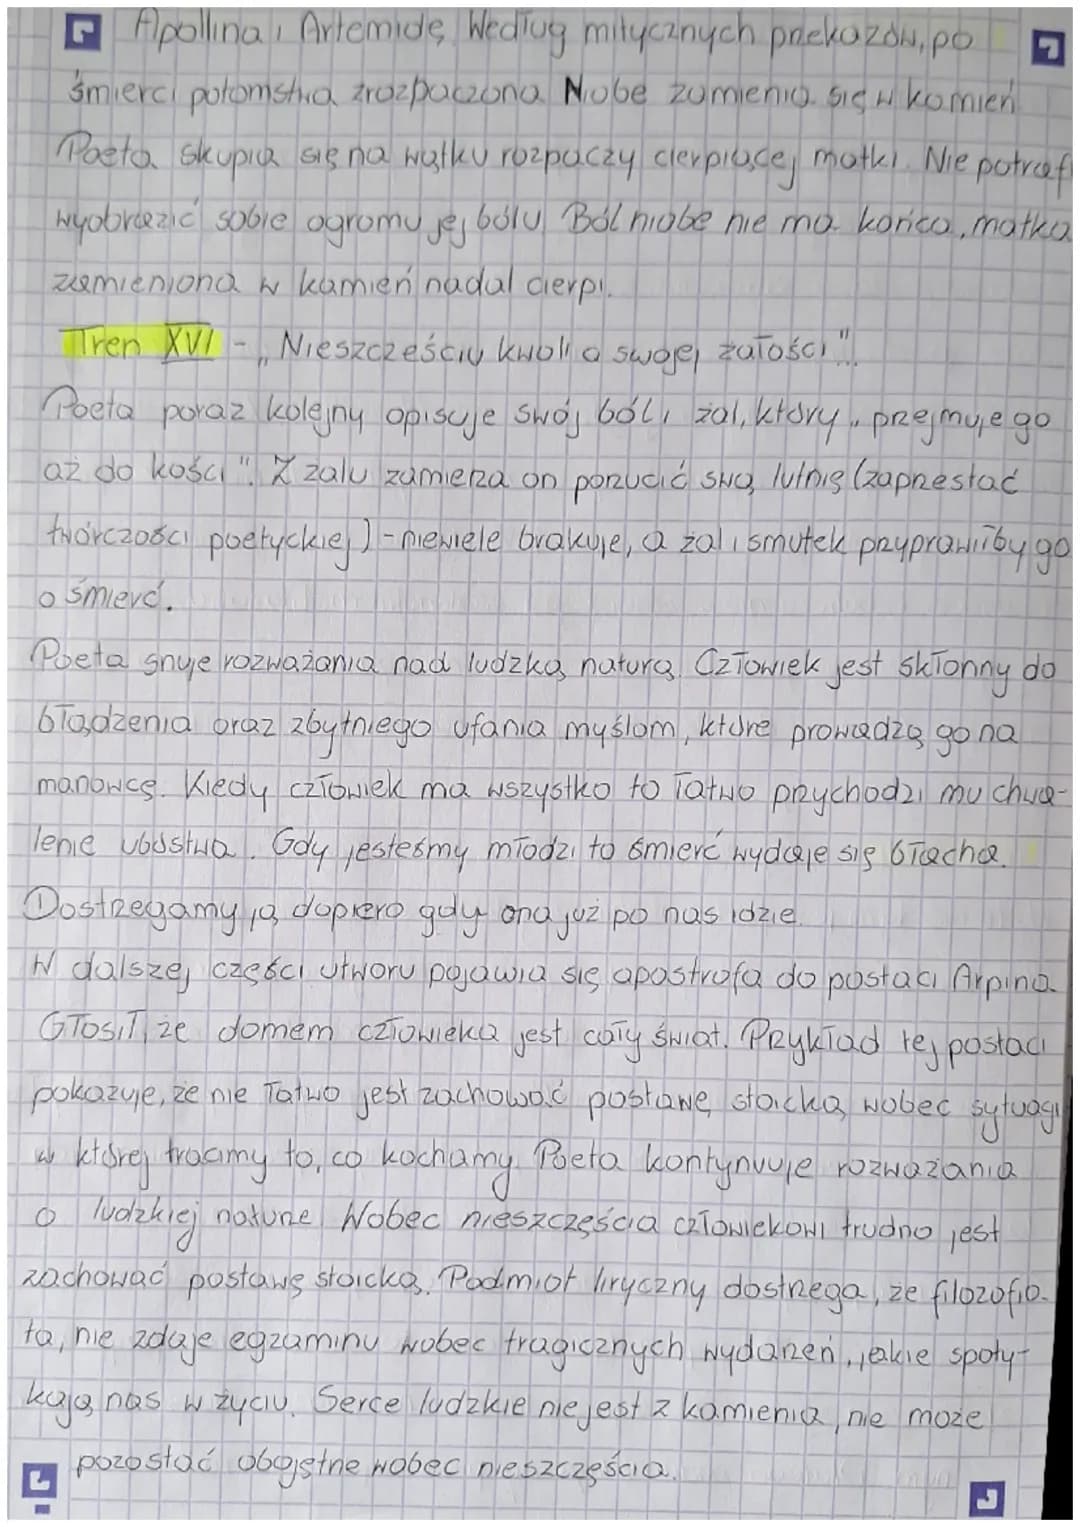 Apollina i Artemidę. Według mitycznych przekazów, po
śmierci potomstwa zrozpaczona Niobe zamienia się w kamień
Poeta skupia się na wątku rozpaczy cierpiącej matki. Nie potraf
wyobrazić sobie ogromu jej bólu. Ból niobe nie ma końca, matka
zamieniona w kamień nadal cierpi.
Tren XVI - „Nieszczęściu kwoli a swojej żałości".
Poeta poraz kolejny opisuje swój ból i żal, który „przejmuje go
aż do kości". Z żalu zamierza on porzucić swą lutnię (zaprzestać
twórczości poetyckiej) - niewiele brakuje, a żal i smutek przyprawiłby go
o śmierć.
Poeta snuje rozważania nad ludzką naturą. Człowiek jest skłonny do
błądzenia oraz zbytniego ufania myślom, które prowadzą go na
manowcę. Kiedy człowiek ma wszystko to łatwo przychodzi mu chwa-
lenie ubóstwa. Gdy jesteśmy młodzi to śmierć wydaje się błacha.
Dostrzegamy ją dopiero gdy ona już po nas idzie.
W dalszej części utworu pojawia się apostrofa do postaci Arpina.
Głosił, że domem człowieka jest cały świat. Przykład tej postaci
pokazuje, że nie łatwo jest zachować postawę stoicką wobec sytuacji
w której tracimy to, co kochamy. Poeta kontynuuje rozważania
o ludzkiej naturze. Wobec nieszczęścia człowiekowi trudno jest
zachować postawę stoicką. Podmiot liryczny dostrzega, że filozofia
ta, nie zdaje egzaminu wobec tragicznych wydarzeń, jakie spoty-
kają nas w życiu. Serce ludzkie nie jest z kamienia, nie może
pozostać obojętne wobec nieszczęścia.